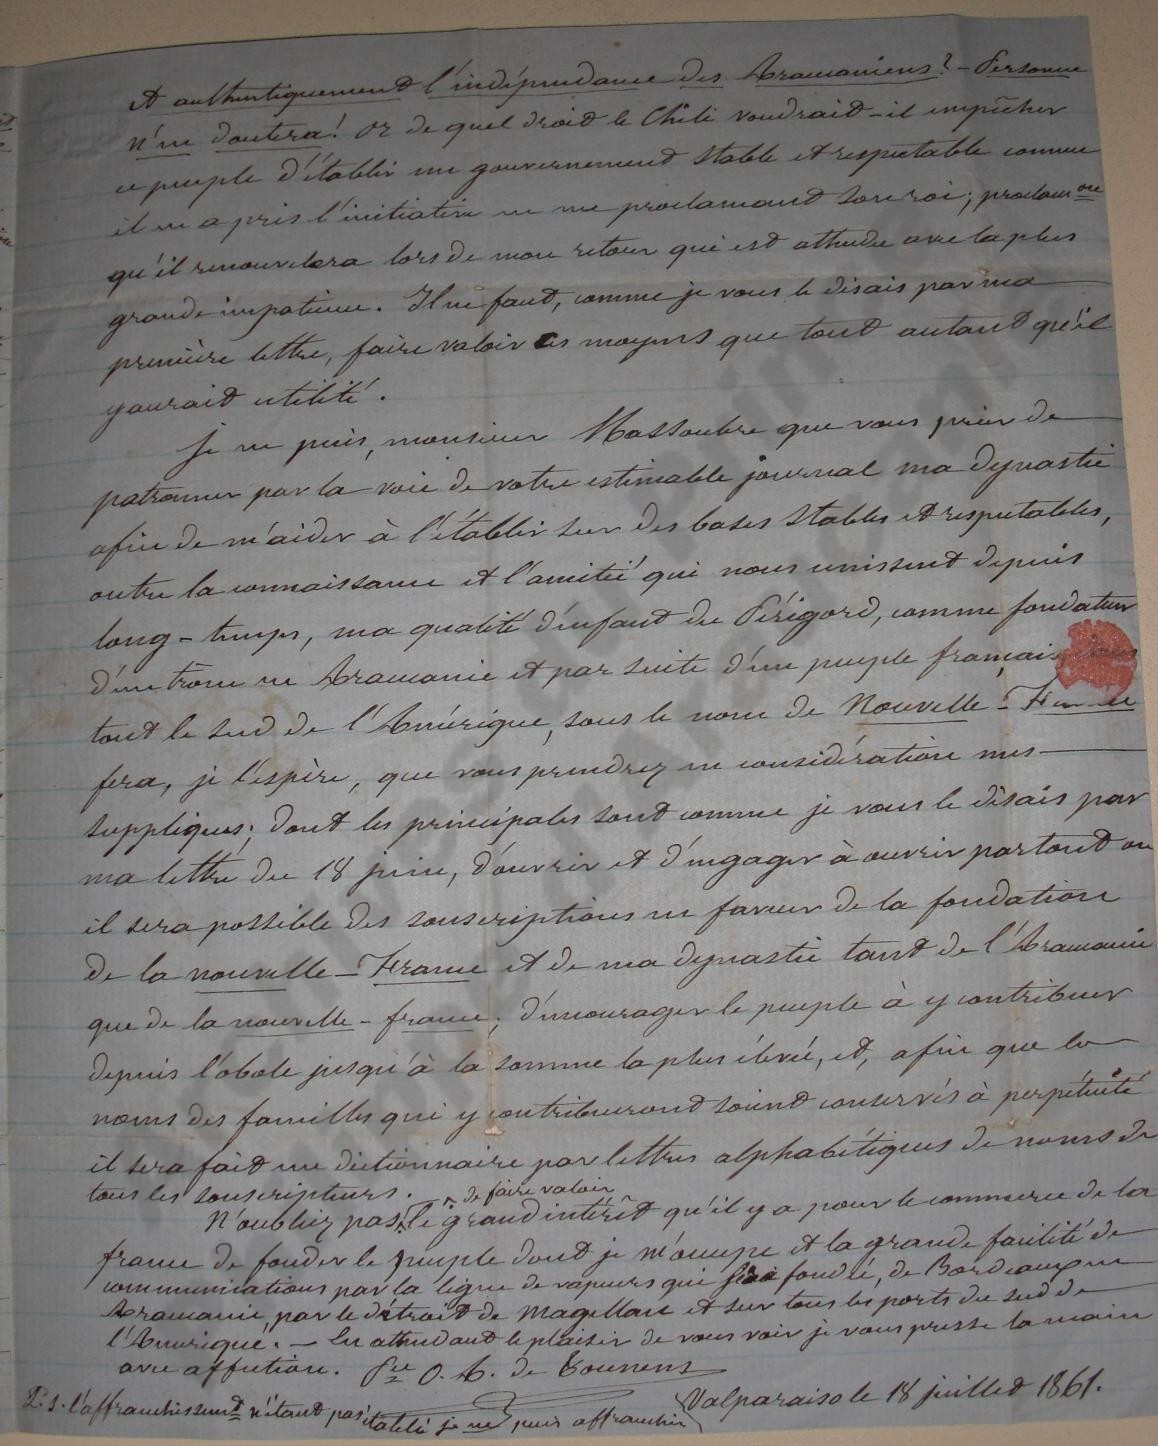 et authentiquement l'indépendance des Araucaniens? - Personne
n'en doutera! Or de quel droit le Chili voudrait-il empêcher
ce peuple d'établir un gouvernement stable et respectable comme
il en a pris l'initiative en me proclamant son roi; proclamon
qu'il renouvelera lors de mon retour qui est attendu avec la plus
grande impatience. Il ne faut, comme je vous le disais par ma
première lettre, faire valoir ces moyens que tout autant qu'il
y aurait utilité.
Je ne puis, monsieur Massoubre que vous prier de
patronner par la voie de votre estimable journal ma dynastie
afin de m'aider à l'établir sur des bases stables et respectables,
outre la connaissance et l'amitié qui nous unissent depuis
long-temps, ma qualité d'enfant du Périgord, comme fondateur
d'un trône en Araucanie et par suite d'un peuple français dans
tout le sud de l'Amérique, sous le nom de Nouvelle-France
fera, je l'espère, que vous prendrez en considération mes
suppliques; dont les principales sont comme je vous le disais par
ma lettre du 18 juin, d'ouvrir et d'engager à ouvrir partout ou
il sera possible des souscriptions en faveur de la fondation
de la nouvelle-France et de ma dynastie tant de l'Araucanie
que de la nouvelle-france; d'encourager le peuple à y contribuer
depuis l'obole jusqu'à la somme la plus élevée, et, afin que les
noms des familles qui y contribueront soient conservés à perpétuité
il sera fait un dictionnaire par lettres alphabétiques de noms de
tous les souscripteurs.
de faire valoir
N'oubliez pas le grand intérêt qu'il y a pour le commerce de la
france de fonder le peuple dont je m'occupe et la grande facilité de
communications par la ligne de vapeurs qui sera fondée, de Bordeaux en
Araucanie, par le détroit de Magellan et sur tous les ports du sud de
l'Amérique. - En attendant le plaisir de vous voir je vous presse la main
avec affection. Pce O. A. de Tounens
Valparaiso le 18 juillet 1861.
P.s. l'affranchissemt n'étant pas établi je ne puis affranchir